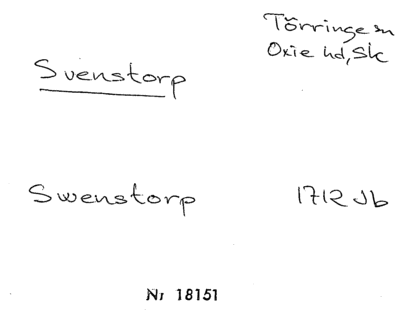 Törringe sn
Oxie hd, Sk
Svenstorp
Swenstorp 1712 Jb
Nr 18151